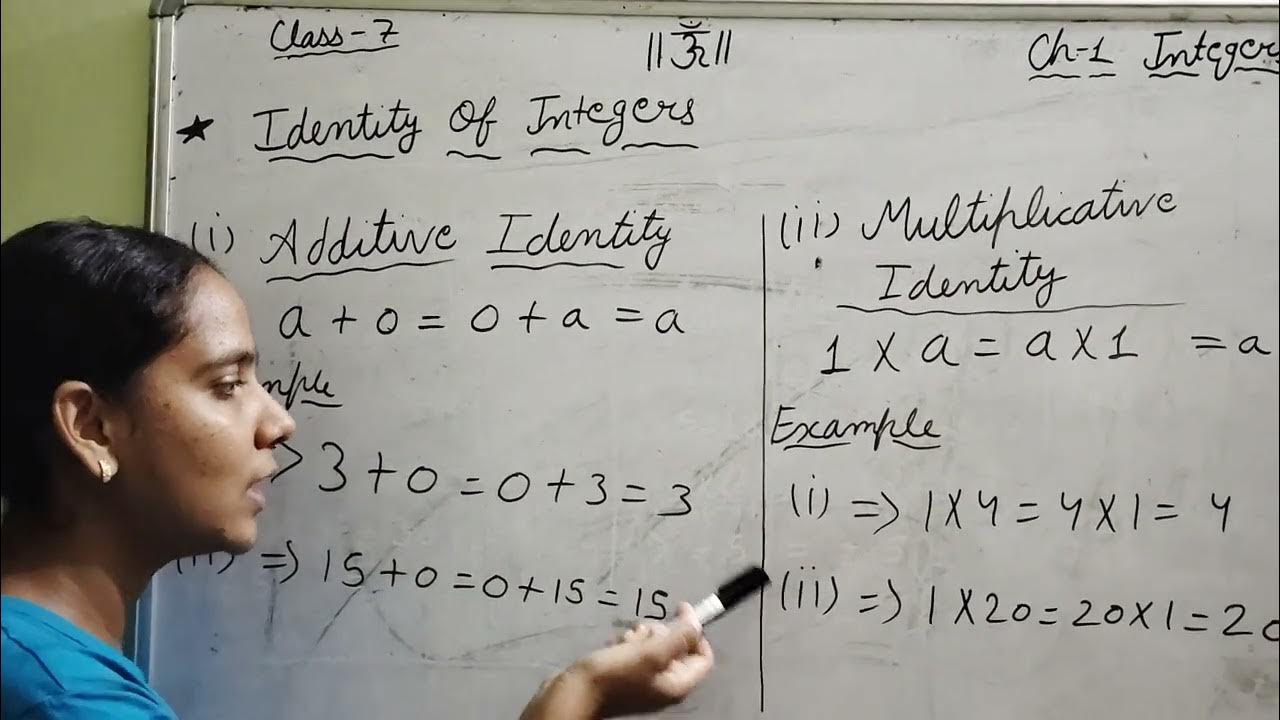 Class-7
||ॐ||
Ch-1 Integers
★ Identity Of Integers
(i) Additive Identity
a + 0 = 0 + a = a
3 + 0 = 0 + 3 = 3
=> 15 + 0 = 0 + 15 = 15
(ii) Multiplicative
Identity
1 X a = a X 1 = a
Example
(i) => 1 X 4 = 4 X 1 = 4
(ii) => 1 X 20 = 20 X 1 = 20